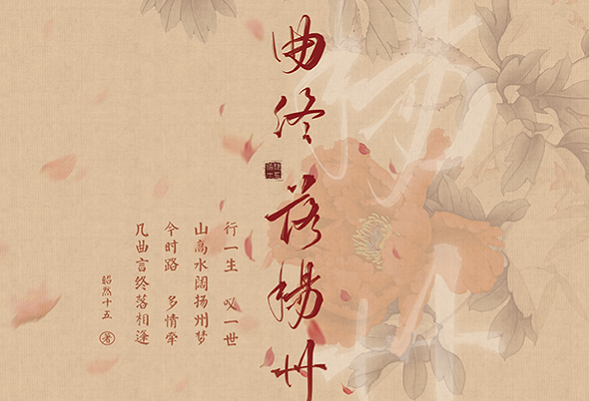 曲终落扬州
行一生 叹一世
山高水阔扬州梦
今时路 多情牵
几曲言终落相逢
昭然十五 著